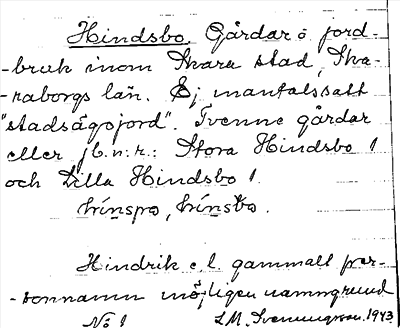 Hindsbo. Gårdar o jord-
-bruk inom Skara stad, Ska-
-raborgs län. Ej mantalssatt
"stadsägojord". Tvenne gårdar
eller jb.n:r: Stora Hindsbo 1
och Lilla Hindsbo 1.
hínspo, hínsbo.
Hindrik e. l. gammalt per-
-sonnamn möjligen namngrund
No 1 L.M. Svenungsson. 1943